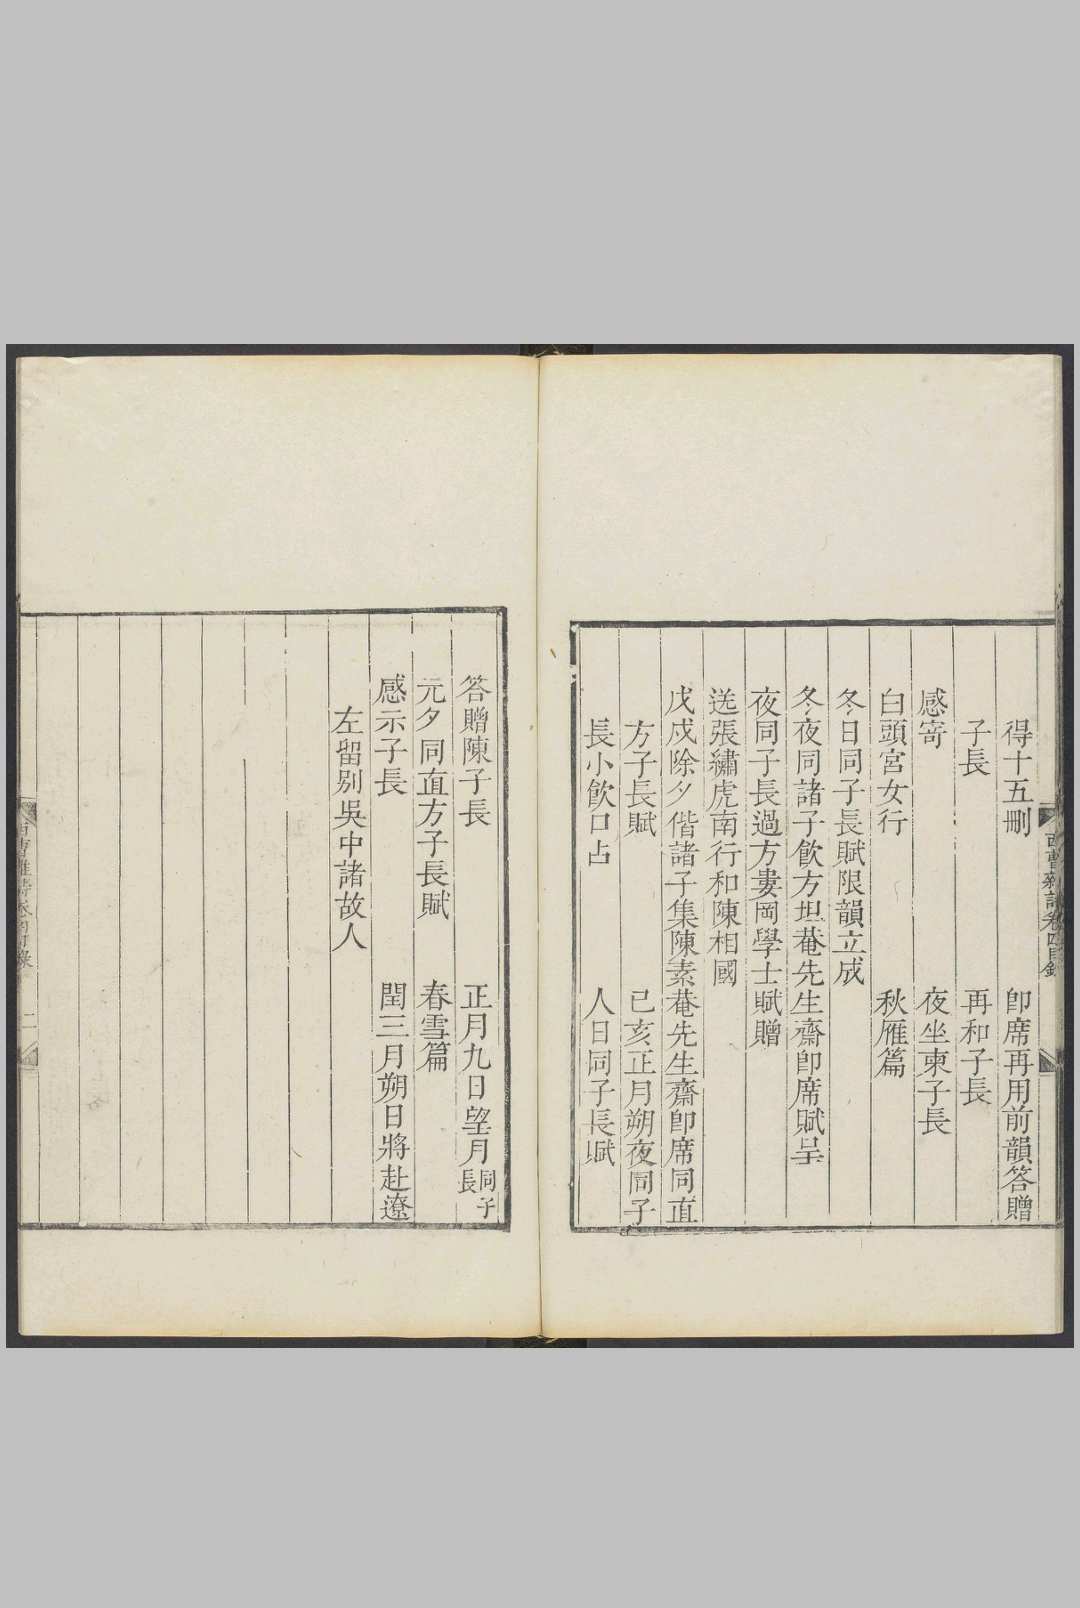 西曹雜詩卷四目錄
得十五刪　即席再用前韻答贈
子長　再和子長
感寄　夜坐柬子長
白頭宮女行　秋雁篇
冬日同子長賦限韻立成
冬夜同諸子飲方坦菴先生齋即席賦呈
夜同子長過方婁岡學士賦贈
送張繡虎南行和陳相國
戊戌除夕偕諸子集陳素菴先生齋即席同直
方子長賦　己亥正月朔夜同子
長小飲口占　人日同子長賦
答贈陳子長　正月九日望月同子長
元夕同直方子長賦　春雪篇
感示子長　閏三月朔日將赴遼
左留別吳中諸故人
西曹雜詩卷四目錄　二